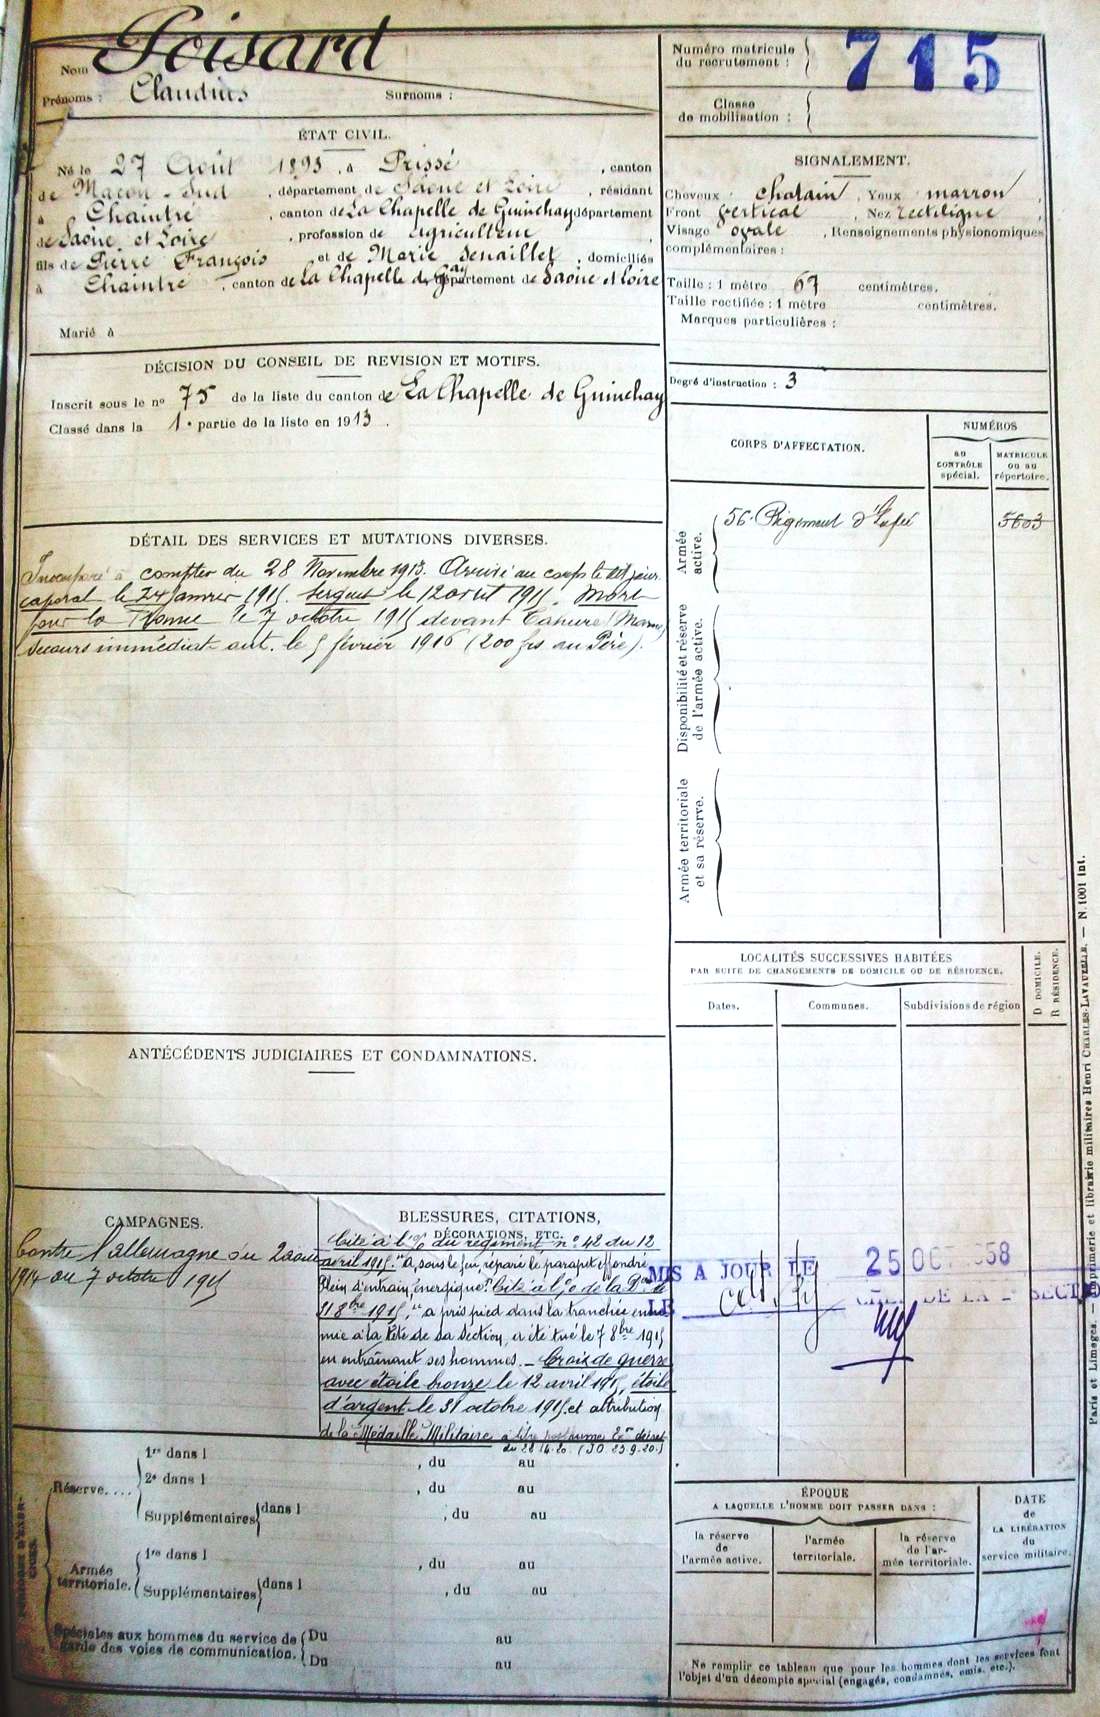 Nom Poisard
Prénoms : Claudius Surnoms :
Numéro matricule du recrutement : 715
Classe de mobilisation :
ÉTAT CIVIL.
Né le 27 Août 1893, à Prissé, canton
de Macon-Sud, département de Saône et Loire, résidant
à Chaintré, canton de La Chapelle de Guinchay département
de Saône et Loire, profession de agriculteur
fils de Pierre François et de Marie Senaillet, domiciliés
à Chaintré, canton de La Chapelle de Gay département de Saône et Loire
Marié à
SIGNALEMENT.
Cheveux : chatain, Yeux marron,
Front vertical, Nez rectiligne,
Visage ovale, Renseignements physionomiques
complémentaires :
Taille : 1 mètre 67 centimètres.
Taille rectifiée : 1 mètre centimètres.
Marques particulières :
Degré d'instruction : 3
DÉCISION DU CONSEIL DE REVISION ET MOTIFS.
Inscrit sous le no 75 de la liste du canton de La Chapelle de Guinchay
Classé dans la 1e partie de la liste en 1913.
CORPS D'AFFECTATION.
NUMÉROS
au CONTRÔLE spécial.
MATRICULE ou au répertoire.
Armée active.
56e Régiment d'Infie 5603
Disponibilité et réserve de l'armée active.
Armée territoriale et sa réserve.
DÉTAIL DES SERVICES ET MUTATIONS DIVERSES.
Incorporé à compter du 28 Novembre 1913. Arrivé au corps le dit jour.
caporal le 24 janvier 1915. Sergent le 12 avril 1915. Mort
pour la France le 7 octobre 1915 devant Tahure (Marne)
Secours immédiat aut. le 5 février 1916 (200 frs au Père).
ANTÉCÉDENTS JUDICIAIRES ET CONDAMNATIONS.
LOCALITÉS SUCCESSIVES HABITÉES
PAR SUITE DE CHANGEMENTS DE DOMICILE OU DE RÉSIDENCE.
Dates. Communes. Subdivisions de région
D DOMICILE.
R RÉSIDENCE.
CAMPAGNES.
Contre l'allemagne du 2 aout
1914 au 7 octobre 1915
BLESSURES, CITATIONS,
DÉCORATIONS, ETC.
Cité à l'o/ du régiment, no 42 du 12
avril 1915. "a, sous le feu, réparé le parapet effondré
Plein d'entrain, énergique". Cité à l'o de la Don le
31 8bre 1915, "a pris pied dans la tranchée enne
mie à la tête de sa section, a été tué le 7 8bre 1915
en entraînant ses hommes. — Croix de guerre
avec étoile bronze le 12 avril 1915, étoile
d'argent le 31 octobre 1915 et attribution
de la Médaille Militaire à titre posthume
du 28.4.20. (JO 23.9.20.)
MIS A JOUR LE 25 OCT 58
LE CHEF DE LA SECTION
Réserve....
1re dans l , du au
2e dans l , du au
Supplémentaires dans l , du au
Armée territoriale.
1re dans l , du au
Supplémentaires dans l , du au
Spéciales aux hommes du service de garde des voies de communication.
Du au
Du au
ÉPOQUE
A LAQUELLE L'HOMME DOIT PASSER DANS :
la réserve de l'armée active.
l'armée territoriale.
la réserve de l'armée territoriale.
DATE de LA LIBÉRATION du service militaire.
Ne remplir ce tableau que pour les hommes dont les services font
l'objet d'un décompte spécial (engagés, condamnés, omis, etc.).
Paris et Limoges. — Imprimerie et librairie militaires Henri CHARLES-LAVAUZELLE. — N. 1001 int.